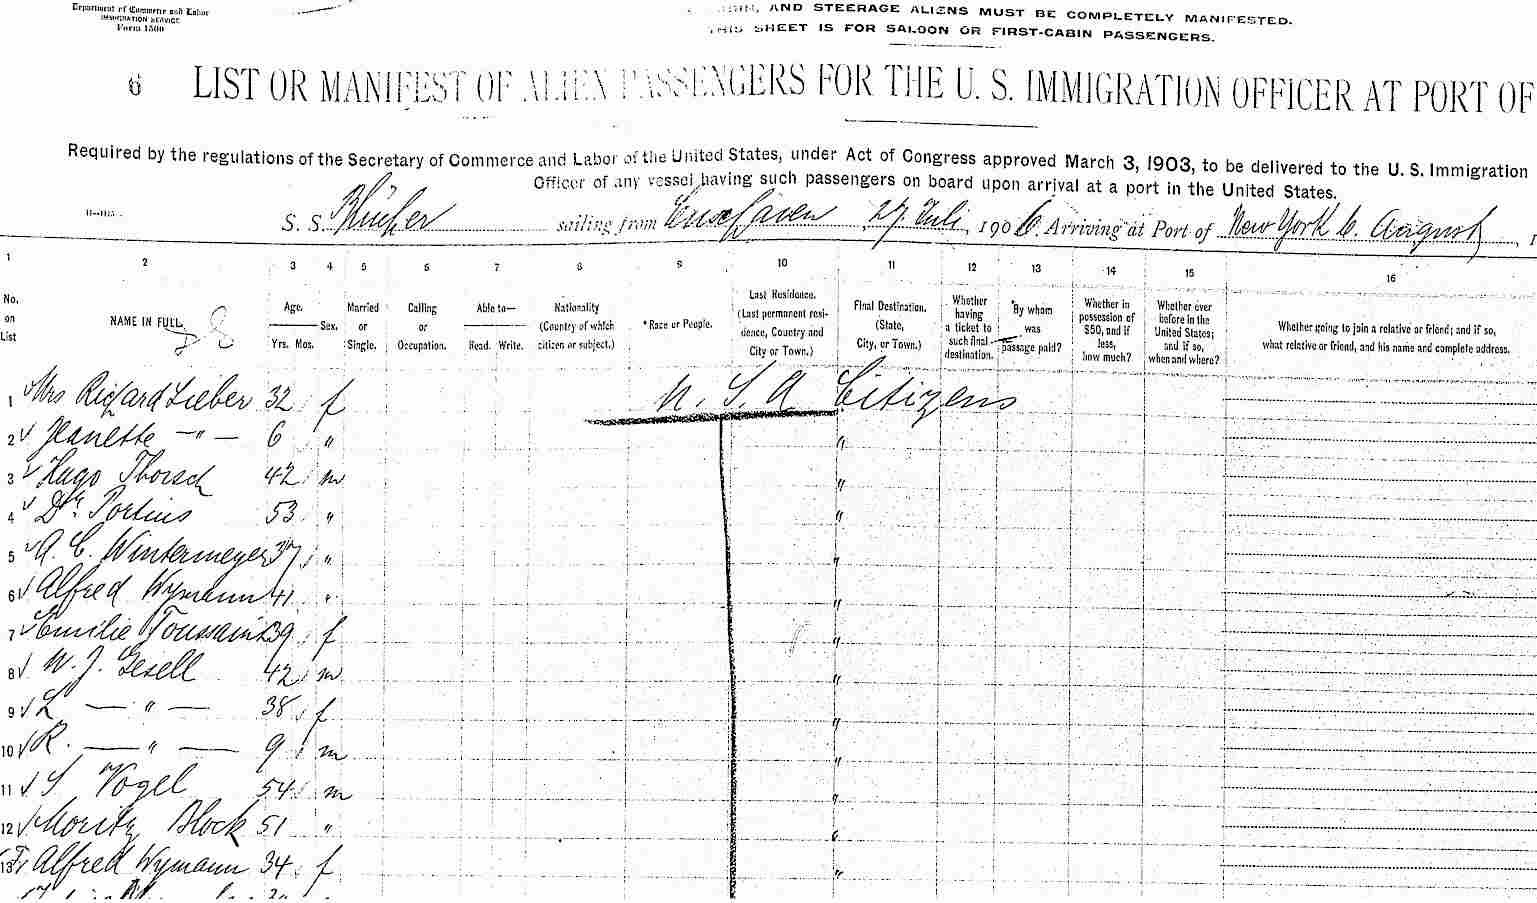 Department of Commerce and Labor
IMMIGRATION SERVICE
Form 1500
AND STEERAGE ALIENS MUST BE COMPLETELY MANIFESTED.
THIS SHEET IS FOR SALOON OR FIRST-CABIN PASSENGERS.
6 LIST OR MANIFEST OF ALIEN PASSENGERS FOR THE U. S. IMMIGRATION OFFICER AT PORT OF
Required by the regulations of the Secretary of Commerce and Labor of the United States, under Act of Congress approved March 3, 1903, to be delivered to the U. S. Immigration
Officer of any vessel having such passengers on board upon arrival at a port in the United States.
S. S. Blücher sailing from Cuxhaven, 27. Juli, 1906. Arriving at Port of New York 6. August, 1
1 2 3 4 5 6 7 8 9 10 11 12 13 14 15 16
No. on List
NAME IN FULL
Age. Yrs. Mos.
Sex.
Married or Single.
Calling or Occupation.
Able to— Read. Write.
Nationality (Country of which citizen or subject.)
*Race or People.
Last Residence. (Last permanent residence, Country and City or Town.)
Final Destination. (State, City, or Town.)
Whether having a ticket to such final destination.
*By whom was passage paid?
Whether in possession of $50, and if less, how much?
Whether ever before in the United States; and if so, when and where?
Whether going to join a relative or friend; and if so, what relative or friend, and his name and complete address.
1 Mrs Richard Lieber 32 f U. S. A Citizens
2 Jeanette —"— 6 " "
3 Hugo Thorsch 42 m "
4 Dr. Portius 53 " "
5 A. C. Wintermeyer 37 " "
6 Alfred Wymann 41 " "
7 Emilie Toussaint 39 f "
8 W. J. Gesell 42 m "
9 L —"— 38 f "
10 R. —"— 9 m "
11 S Vogel 54 m "
12 Moritz Block 51 " "
13 Fr Alfred Wymann 34 f "